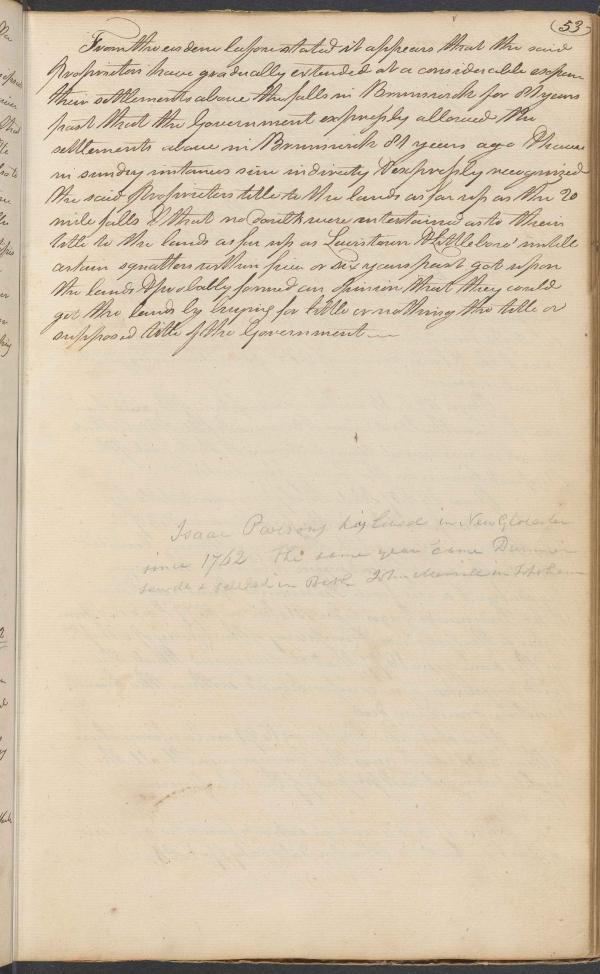 (53)
From the evidence before stated it appears that the said
Proprietors have gradually extended at a considerable expence
their settlements above the falls in Brunswick for 81 years
past that the Government expressly allowed the
settlements above in Brunswick 81 years ago & have
in sundry instances since indirectly & expressly recognized
the said Proprietors title to the lands as far up as the 20
mile falls & that no doubts were entertained as to their
title to the lands as far up as Lewistown & Littleboro' untill
certain squatters within five or six years past got upon
the lands & probably formed an opinion that they could
get the lands by buying for little or nothing the title or
supposed title of the Government
Isaac Parsons has lived in New Glocester
since 1762 The same year came
& settled in John Merrill in